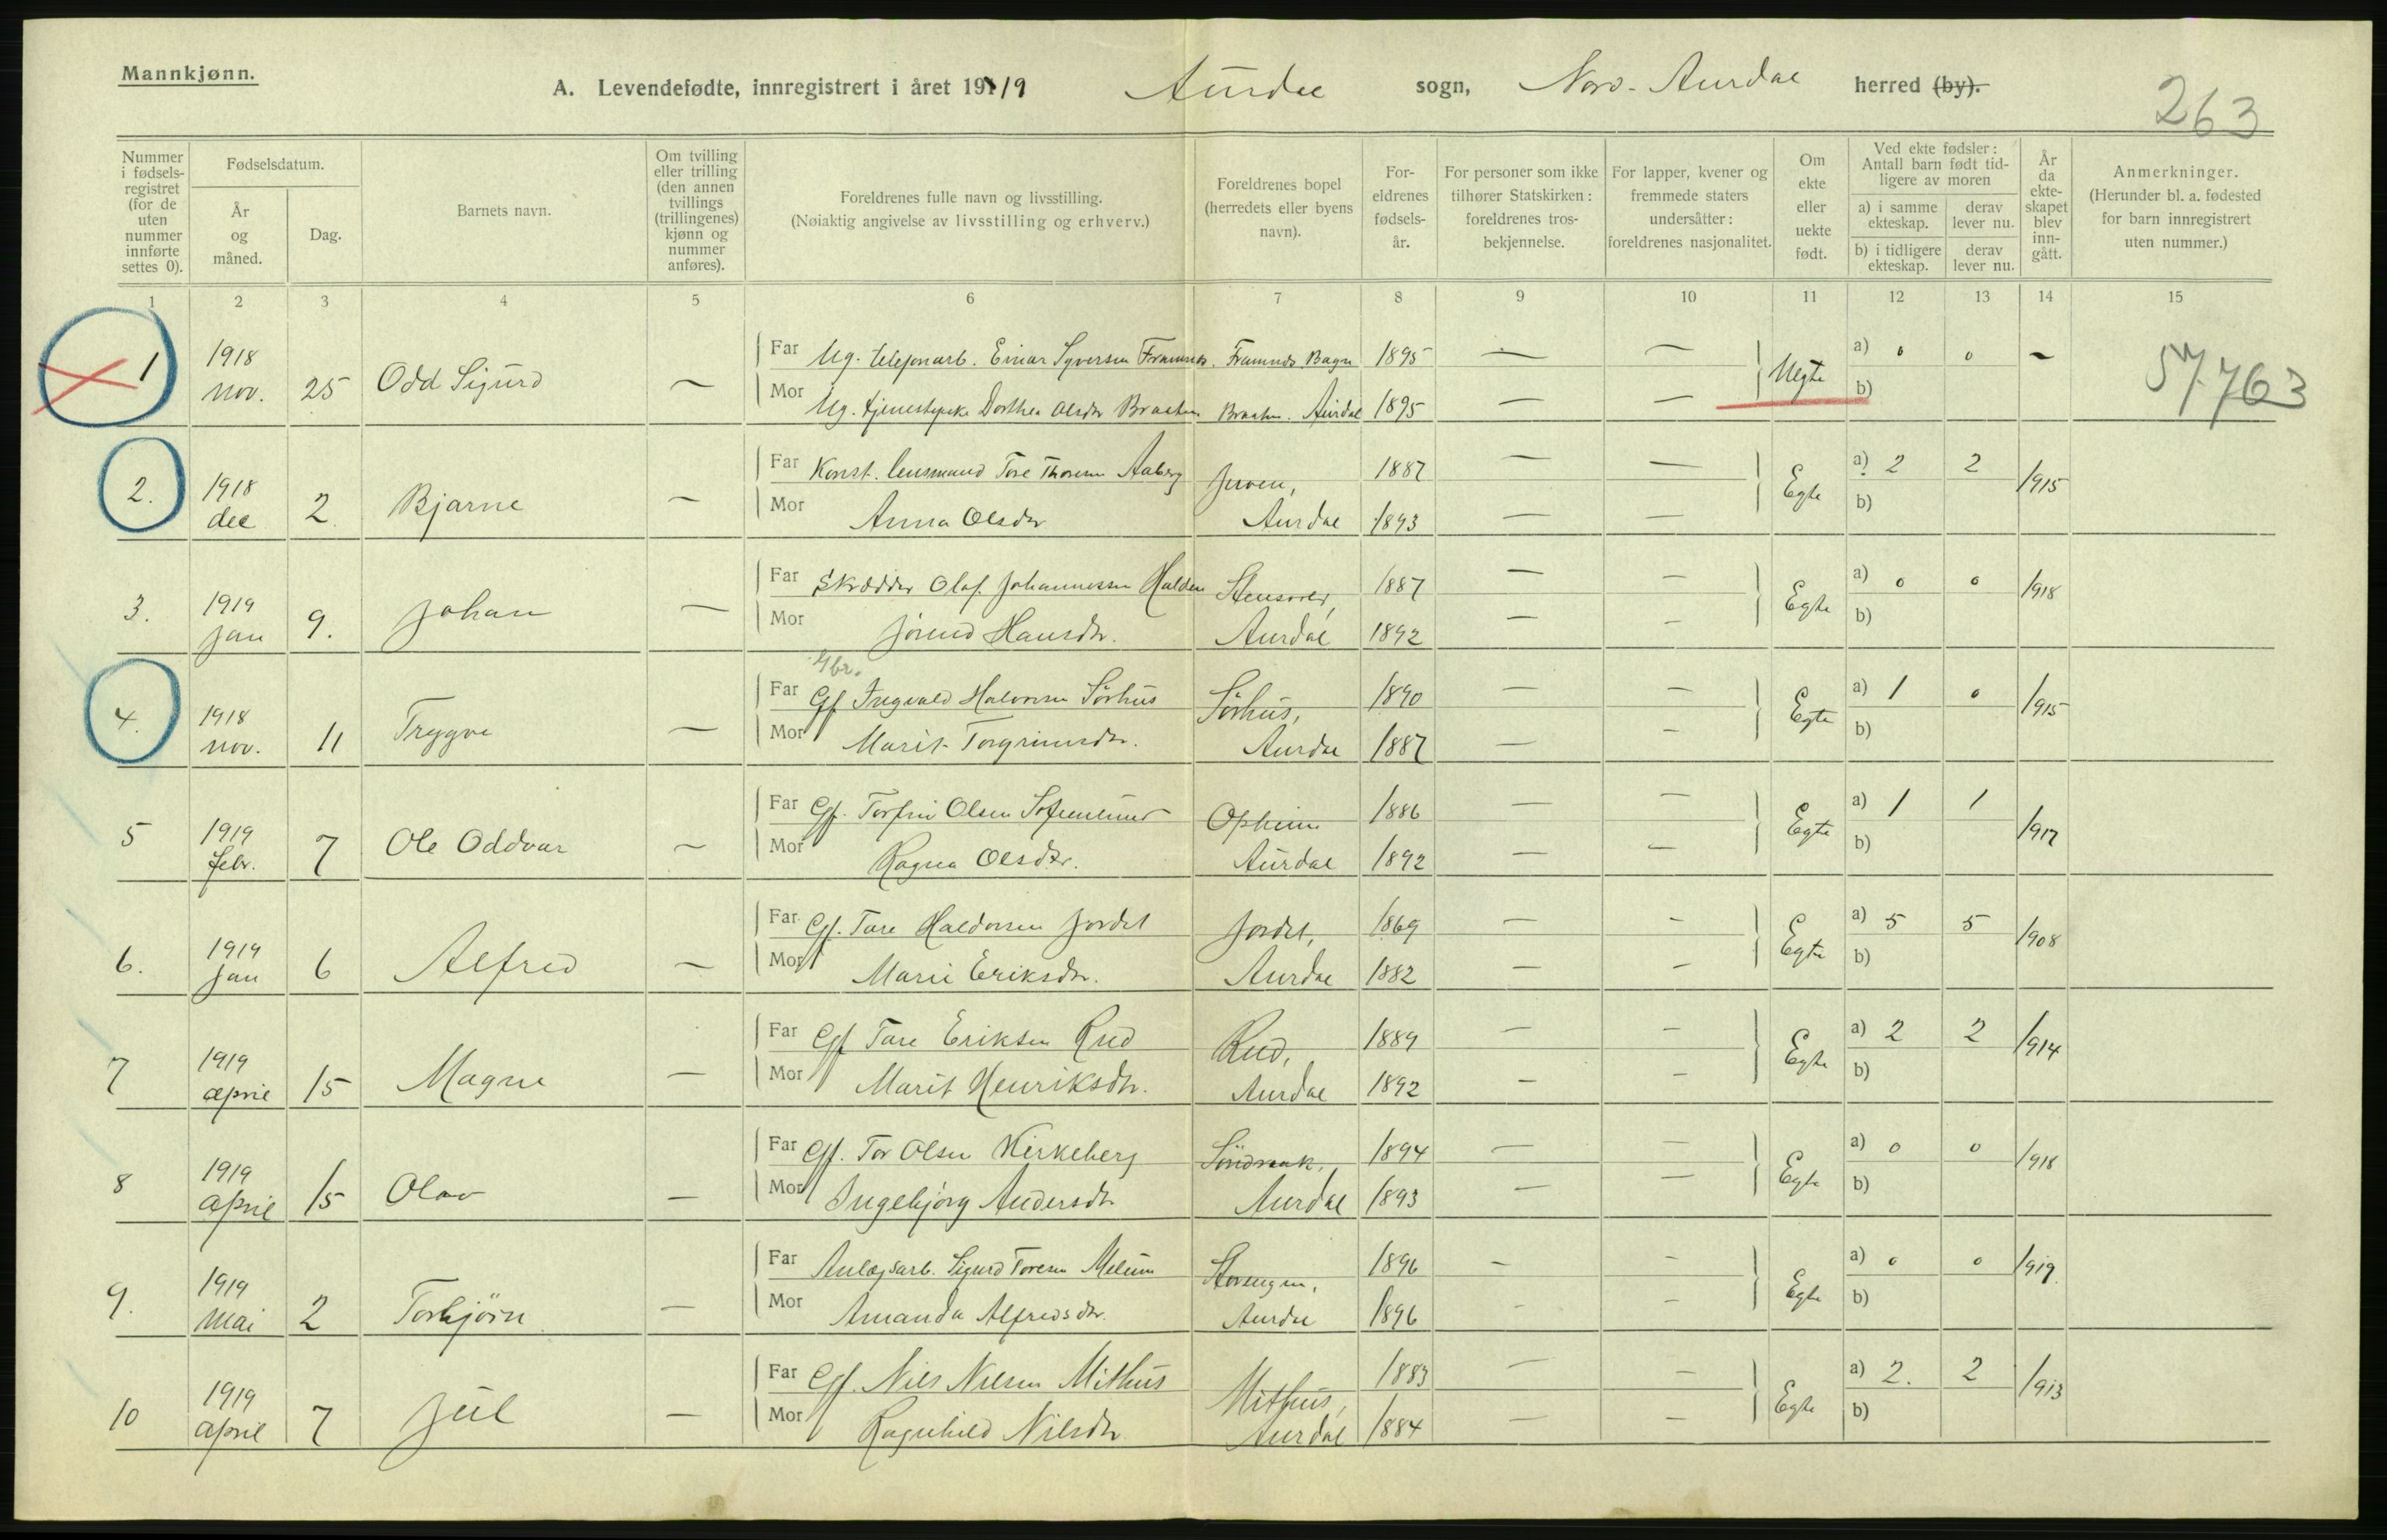 Mannkjønn.
A. Levendefødte, innregistrert i året 1919 Aurdal sogn, Nord-Aurdal herred (by).
263
Nummer i fødsels-registret (for de uten nummer innførte settes 0).
Fødselsdatum.
År og måned.
Dag.
Barnets navn.
Om tvilling eller trilling (den annen tvillings (trillingenes) kjønn og nummer anføres).
Foreldrenes fulle navn og livsstilling.
(Nøiaktig angivelse av livsstilling og erhverv.)
Foreldrenes bopel (herredets eller byens navn).
For-eldrenes fødsels-år.
For personer som ikke tilhører Statskirken: foreldrenes tros-bekjennelse.
For lapper, kvener og fremmede staters undersåtter: foreldrenes nasjonalitet.
Om ekte eller uekte født.
Ved ekte fødsler: Antall barn født tid-ligere av moren
a) i samme ekteskap.
derav lever nu.
b) i tidligere ekteskap.
derav lever nu.
År da ekte-skapet blev inn-gått.
Anmerkninger.
(Herunder bl. a. fødested for barn innregistrert uten nummer.)
1 2 3 4 5 6 7 8 9 10 11 12 13 14 15
1 1918 nov. 25 Odd Sigurd — Far Ug. telefonarb. Einar Syversen Framnes. Framnes Bagn 1895 — — Uegte a) 0 0 — 57.763
Mor Ug. tjenestepike Dorthea Olsdtr Braaten Braaten. Aurdal 1895 — — b)
2. 1918 dec 2 Bjarne — Far Konst. lensmand Tore Thoresen Aaberg 1887 — — Egte a) 2 2 1915
Mor Anna Olsdtr Aurdal 1893 — — b)
3. 1919 Jan 9. Johan — Far Skrædder Olaf Johannessen Halden 1887 — — Egte a) 0 0 1918
Mor Jörend Hansdtr. Aurdal 1892 — — b)
Gbr.
4. 1918 nov. 11 Trygve — Far Gf Ingvald Halvorsen Sörhus Sörhus, 1890 — — Egte a) 1 0 1915
Mor Marit Torgrimsdtr. Aurdal 1887 — — b)
5 1919 febr. 7 Ole Oddvar — Far Gf. Torfin Olsen Opheim 1886 — — Egte a) 1 1 1917
Mor Ragna Olsdtr. Aurdal 1892 — — b)
6. 1919 Jan 6 Alfred — Far Gf. Tore Haldorsen Jordet Jordet, 1869 — — Egte a) 5 5 1908
Mor Marie Eriksdtr. Aurdal 1882 — — b)
7 1919 april 15 Magne — Far Gf Tore Eriksen Rud Rud, 1889 — — Egte a) 2 2 1914
Mor Marit Henriksdtr. Aurdal 1892 — — b)
8 1919 april 15 Olav — Far Gf. Tor Olsen Kirkeberg 1894 — — Egte a) 0 0 1918
Mor Ingebjörg Andersdtr Aurdal 1893 — — b)
9. 1919 Mai 2 Torbjörn — Far Anlægsarb. Sigurd Toresen Melum 1896 — — Egte a) 0 0 1919.
Mor Amanda Alfredsdtr. Aurdal 1896 — — b)
10 1919 april 7 Jul — Far Gf. Nils Nilsen Mithus Mithus, 1883 — — Egte a) 2. 2 1913
Mor Ragnhild Nilsdtr Aurdal 1884 — — b)